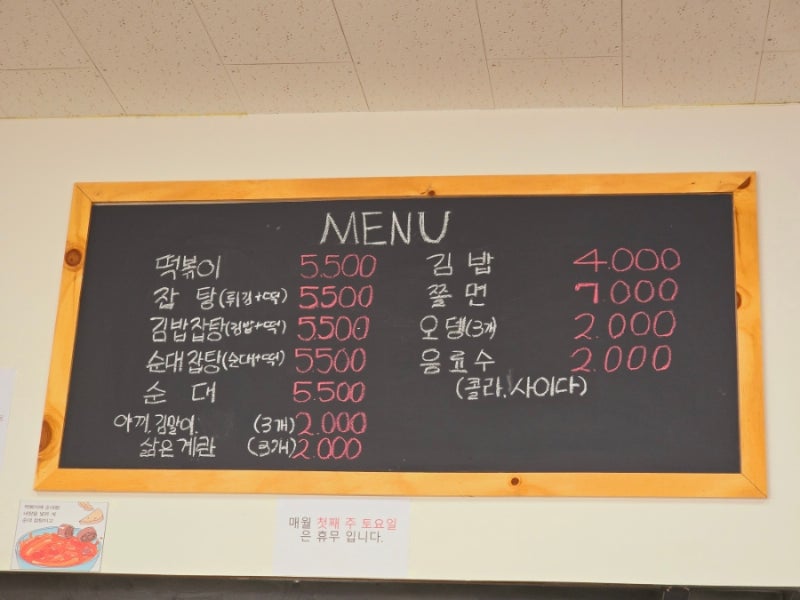 MENU
떡볶이 5.500
잡탕(튀김+떡) 5500
김밥잡탕(김밥+떡) 5.500
순대잡탕(순대+떡) 5500
순대 5.500
야끼.김말이. (3개) 2.000
삶은계란 (3개) 2.000
김밥 4.000
쫄면 7.000
오뎅(3개 2.000
음료수 2.000
(콜라.사이다)
매월 첫째 주 토요일
은 휴무 입니다.